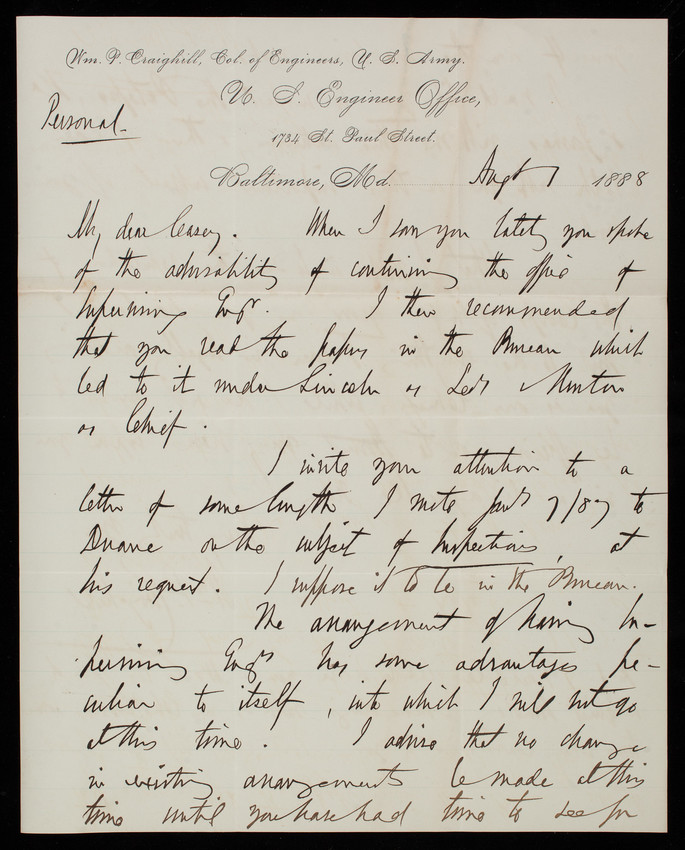 Wm. P. Craighill, Col. of Engineers, U. S. Army.
U. S. Engineer Office,
Personal.
1734 St. Paul Street.
Baltimore, Md. Augt 1888
My dear Casey. When I saw you lately you spoke
of the advisability of continuing the office of
Supervising Engr. I then recommended
that you read the papers in the Bureau which
led to it under Lincoln as Secy
as Chief.
I invite your attention to a
letter of some length I wrote 7/87 to
Duane on the subject of Inspections, at
his request. I suppose it to be in the Bureau.
The arrangement of having Su-
pervising Engrs has some advantages pe-
culiar to itself, into which I will not go
at this time. I advise that no change
in existing arrangements be made at this
time until you have had time to see for